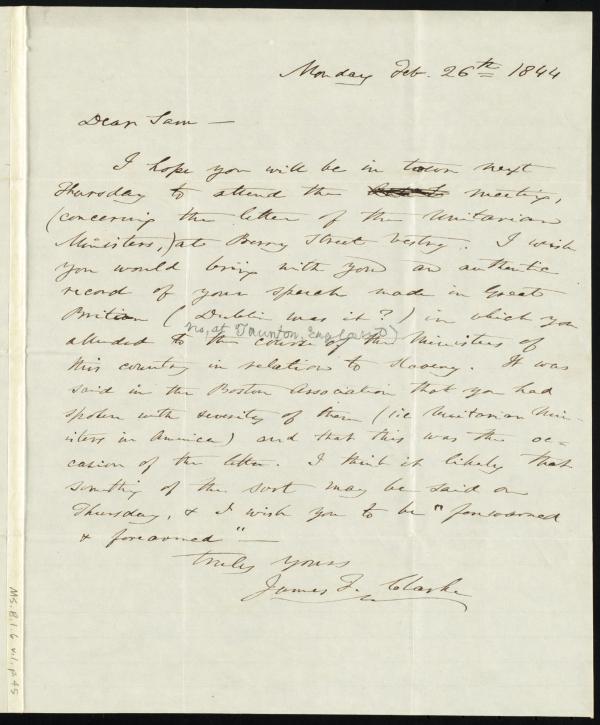 Monday Feb. 26th 1844
Dear Sam —
I hope you will be in town next
Thursday to attend the meeting,
(concerning the letter of the Unitarian
Ministers,) at Berry Street Vestry. I wish
you would bring with you an authentic
record of your speech made in Great
Britain (Dublin was it?) in which you
No, at Taunton, England)
alluded to the course of the Ministers of
this country in relation to Slavery. It was
said in the Boston Association that you had
spoken with severity of them (i.e. Unitarian Min-
isters in America) and that this was the oc-
casion of the letter. I think it likely that
something of the sort may be said on
Thursday, & I wish you to be "forewarned
& forearmed" —
truly yours
James F. Clarke
MS. B. 1. 6 v. 1, p. 45